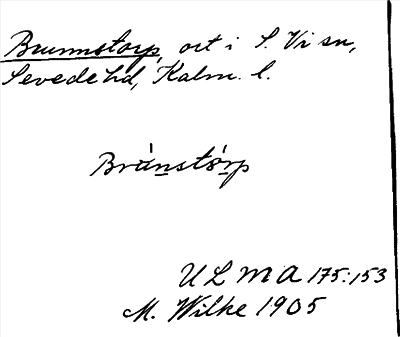 Brunnstorp, ort i S. Vi sn,
Sevede hd, Kalm. l.
Bránstórp
ULMA 175:153
M. Wilke 1905